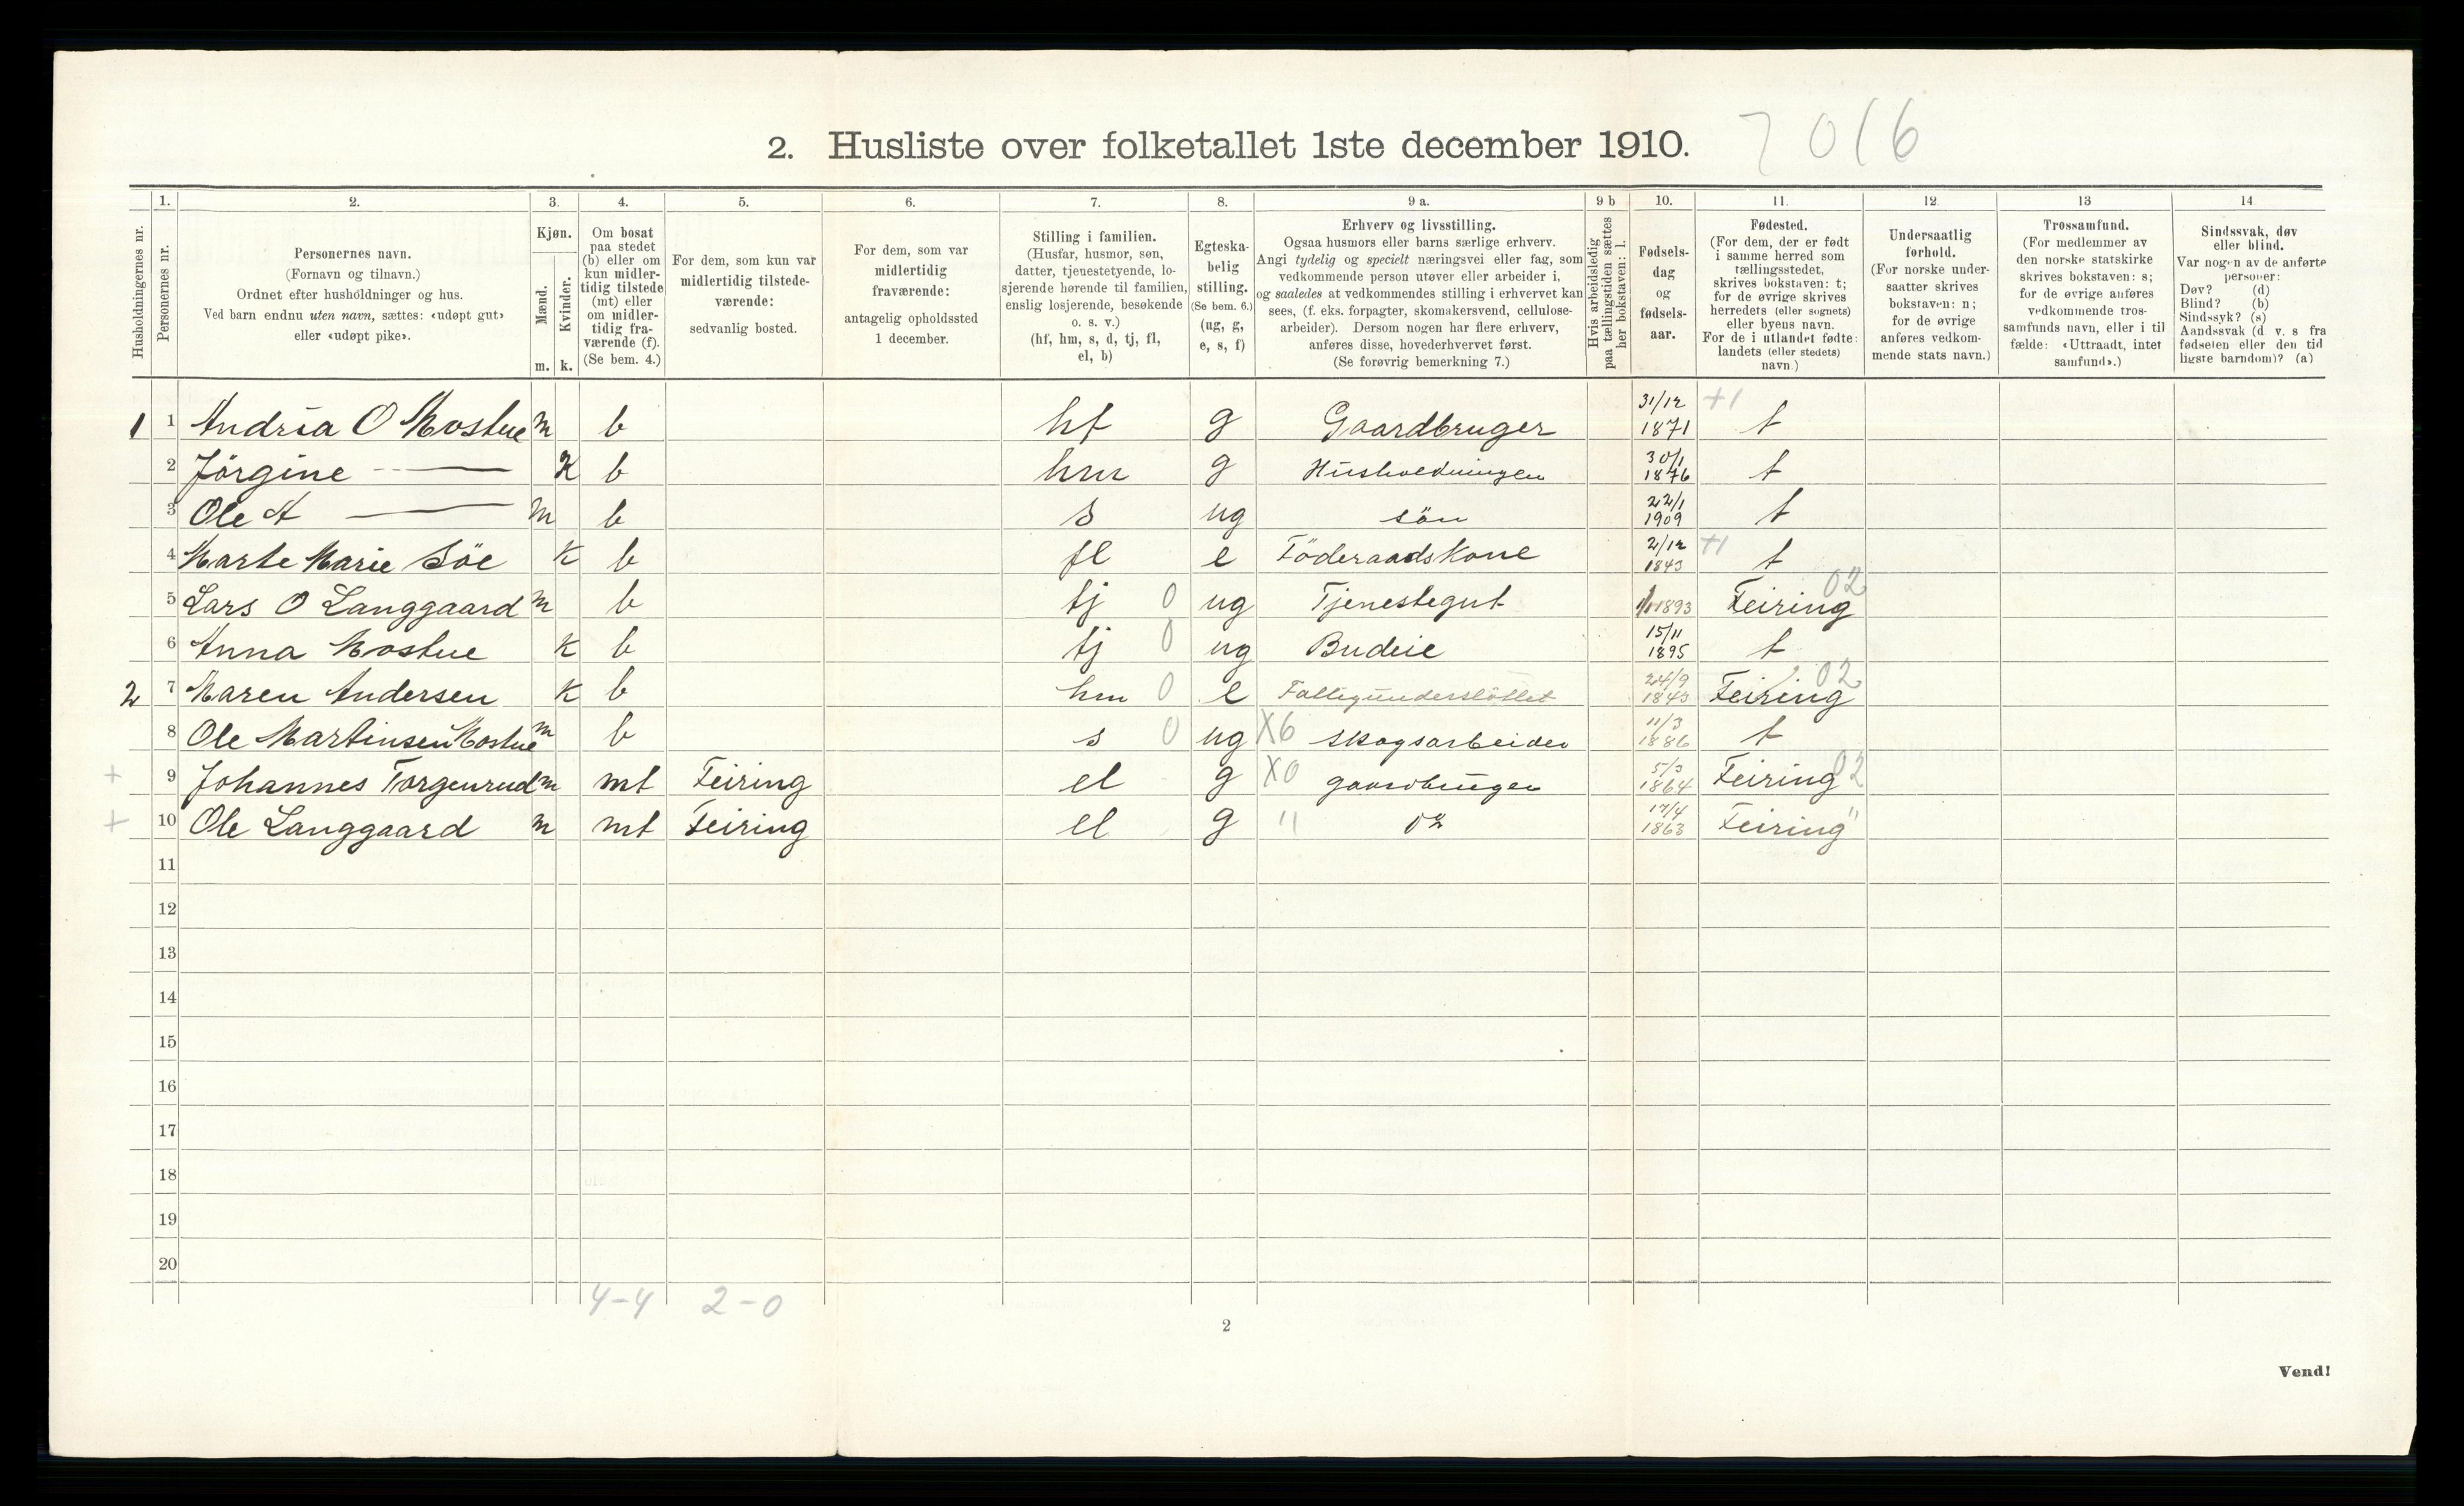 2. Husliste over folketallet 1ste december 1910. 7016
1. 2. 3. 4. 5. 6. 7. 8. 9 a. 9 b 10. 11. 12. 13 14
Husholdningernes nr.
Personernes nr.
Personernes navn.
(Fornavn og tilnavn.)
Ordnet efter husholdninger og hus.
Ved barn endnu uten navn, sættes: «udøpt gut»
eller «udøpt pike».
Kjøn.
Mænd.
Kvinder.
m. k.
Om bosat
paa stedet
(b) eller om
kun midler-
tidig tilstede
(mt) eller
om midler-
tidig fra-
værende (f).
(Se bem. 4.)
For dem, som kun var
midlertidig tilstede-
værende:
sedvanlig bosted.
For dem, som var
midlertidig
fraværende:
antagelig opholdssted
1 december.
Stilling i familien.
(Husfar, husmor, søn,
datter, tjenestetyende, lo-
sjerende hørende til familien,
enslig losjerende, besøkende
o. s. v.)
(hf, hm, s, d, tj, fl,
el, b)
Egteska-
belig
stilling.
(Se bem. 6.)
(ug, g,
e, s, f)
Erhverv og livsstilling.
Ogsaa husmors eller barns særlige erhverv.
Angi tydelig og specielt næringsvei eller fag, som
vedkommende person utøver eller arbeider i,
og saaledes at vedkommendes stilling i erhvervet kan
sees, (f. eks. forpagter, skomakersvend, cellulose-
arbeider). Dersom nogen har flere erhverv,
anføres disse, hovederhvervet først.
(Se forøvrig bemerkning 7.)
Hvis arbeidsledig
paa tællingstiden sættes
her bokstaven: l.
Fødsels-
dag
og
fødsels-
aar.
Fødested.
(For dem, der er født
i samme herred som
tællingsstedet,
skrives bokstaven: t;
for de øvrige skrives
herredets (eller sognets)
eller byens navn.
For de i utlandet fødte:
landets (eller stedets)
navn.)
Undersaatlig
forhold.
(For norske under-
saatter skrives
bokstaven: n;
for de øvrige
anføres vedkom-
mende stats navn.)
Trossamfund.
(For medlemmer av
den norske statskirke
skrives bokstaven: s;
for de øvrige anføres
vedkommende tros-
samfunds navn, eller i til
fælde: «Uttraadt, intet
samfund».)
Sindssvak, døv
eller blind.
Var nogen av de anførte
personer:
Døv? (d)
Blind? (b)
Sindssyk? (s)
Aandssvak (d. v. s. fra
fødselen eller den tid
ligste barndom)? (a)
1 1 Andria O Mostue m b hf g Gaardbruger 31/12 1871 +1 t
2 Jörgine — k b hm g Husholdningen 30/1 1876 t
3 Ole A — m b s ug sön 22/1 1909 t
4 Marte Marie Söe k b fl e Föderaadskone 2/12 1843 +1 t
5 Lars O Langgaard m b tj 0 ug Tjenestegut 1893 Feiring 02
6 Anna Mostue k b tj 0 ug Budeie 15/11 1895 t
2 7 Maren Andersen k b hm 0 e Fattigunderstöttet 24/9 1843 Feiring 02
8 Ole Martinsen Mostue m b s 0 ug X6 Skogsarbeider 11/3 1886 t
+ 9 Johannes Torgenrud m mt Feiring el g X0 gaardbruger 5/3 1864 Feiring 02
+ 10 Ole Langgaard m mt Feiring el g " do 17/4 1863 Feiring "
11
12
13
14
15
16
17
18
19
20
4-4 2-0
2
Vend!